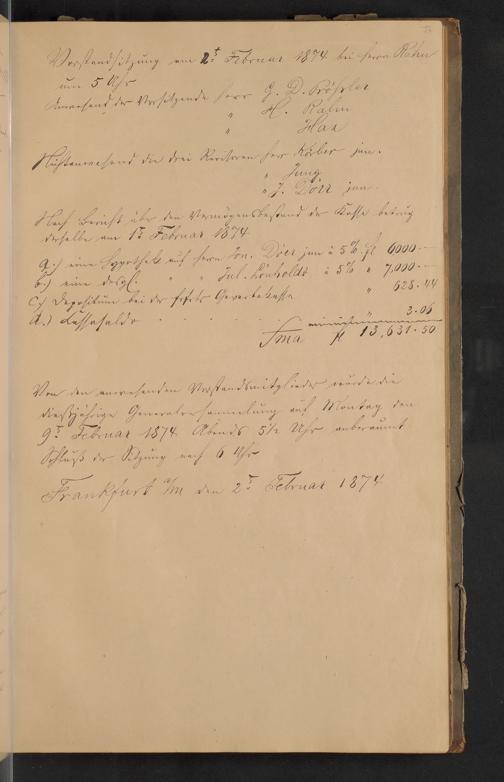 Vorstandsitzung am 2t Februar 1874 bei Herrn Rahm
um 5 Uhr
Anwesend der Vorsitzende Herr G. D.
" H. Rahm
" Haa
Nichtanwesend die drei Revisoren Herr Körber jun.
" Jung
" J. Dörr jun.
Nach Bericht über den Vermögensbestand der Kasse betrug
derselbe am 1t Februar 1874
a.) eine Hypothek auf Herrn Dörr jun à 5% fl 6000.—
b.) eine desgl. " " Jul. à 5% " 7,000.—
c.) Depositum bei der Gewerbekasse " 628.44
d.) Kassasaldo 3.06
Sma fl 13,631.50
Von den anwesenden Vorstandsmitglieder wurde die
diesjährige Generalversammlung auf Montag den
9t Februar 1874 Abends 5½ Uhr anberaumt
Schluß der Sitzung nach 6 Uhr
Frankfurt a/M den 2t Februar 1874